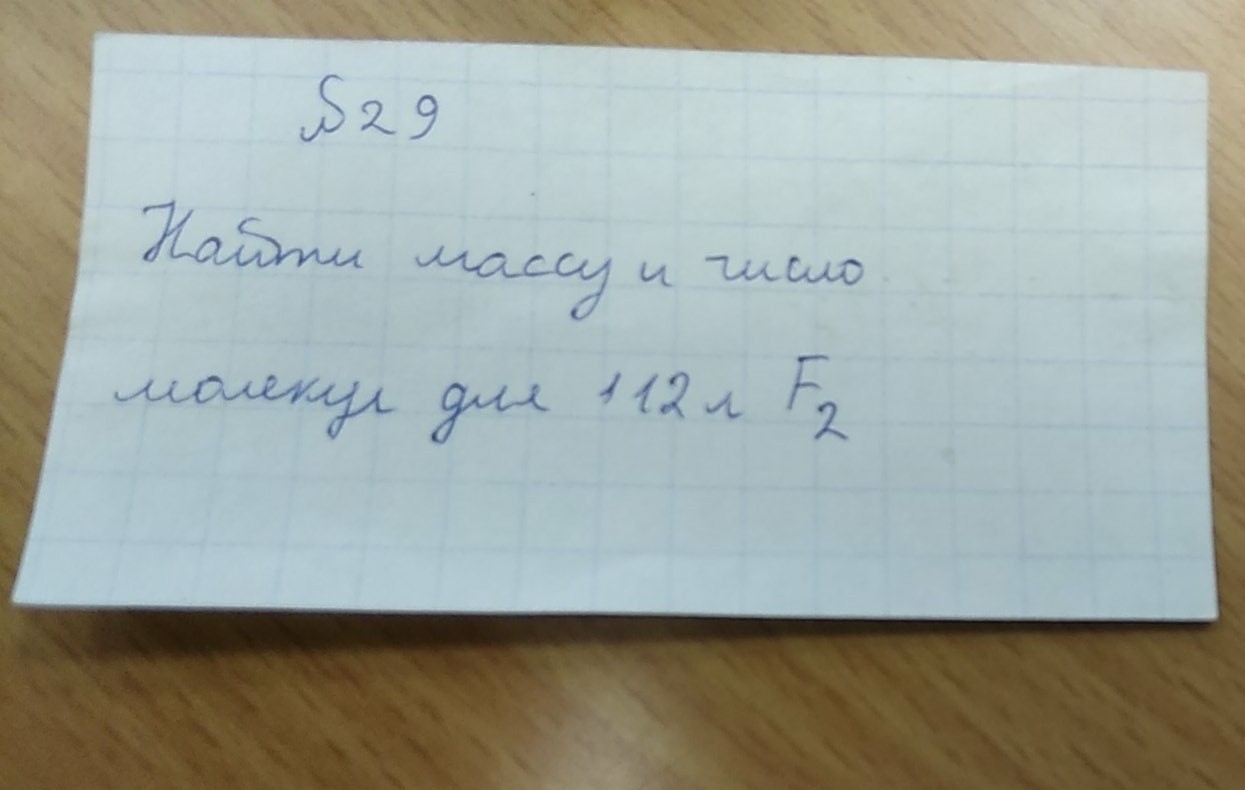 №29
Найти массу и число
молекул для 112 л F₂